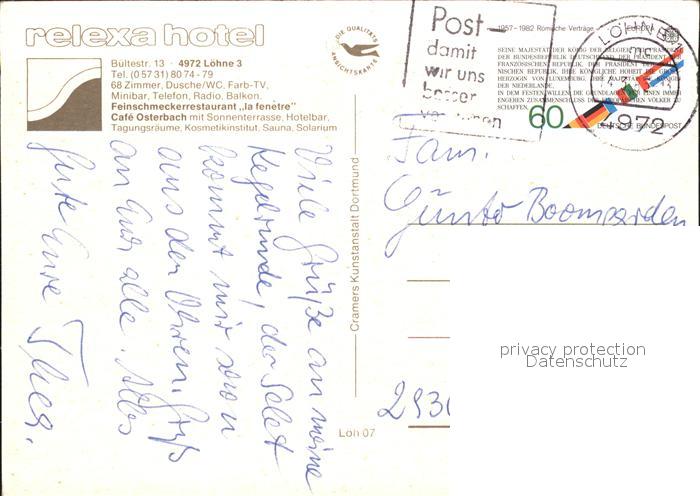 relexa hotel
Bültestr. 13 · 4972 Löhne 3
Tel. (0 57 31) 80 74 - 79
68 Zimmer, Dusche/WC, Farb-TV,
Minibar, Telefon, Radio, Balkon.
Feinschmeckerrestaurant „la fenetre"
Café Osterbach mit Sonnenterrasse, Hotelbar,
Tagungsräume, Kosmetikinstitut, Sauna, Solarium
DIE QUALITÄTS
ANSICHTSKARTE
Viele Grüße an meine
Kegelrunde, der Salat
kommt mir schon
aus den Ohren. Gruß
an Euch alle. Alles
Gute Eure
Cramers Kunstanstalt Dortmund
Löh 07
Post-
damit
wir uns
besser
verstehen
1957-1982 Römische Verträge
EUROPA
SEINE MAJESTÄT DER KÖNIG DER BELGIER, DER PRÄSIDENT
DER BUNDESREPUBLIK DEUTSCHLAND, DER PRÄSIDENT DER
FRANZÖSISCHEN REPUBLIK, DER PRÄSIDENT DER ITALIE-
NISCHEN REPUBLIK, IHRE KÖNIGLICHE HOHEIT DIE GROSS-
HERZOGIN VON LUXEMBURG, IHRE MAJESTÄT DIE KÖNIGIN
DER NIEDERLANDE,
IN DEM FESTEN WILLEN, DIE GRUNDLAGEN FÜR EINEN IMMER
ENGEREN ZUSAMMENSCHLUSS DER EUROPÄISCHEN VÖLKER ZU
SCHAFFEN,
60
DEUTSCHE BUNDESPOST
LÖHNE
4972
Fam.
Günter Boomgarden
privacy protection
Datenschutz
293